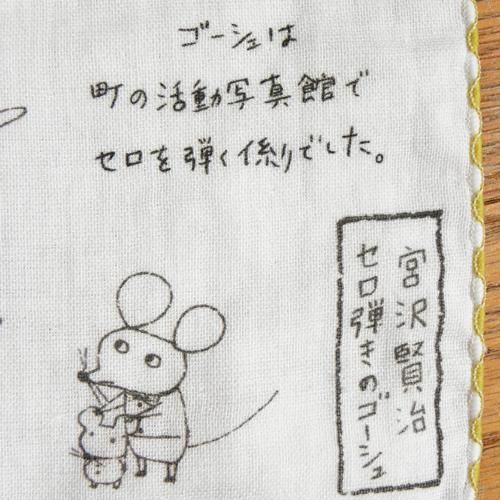 ゴーシュは
町の活動写真館で
セロを弾く係りでした。
宮沢賢治
セロ弾きのゴーシュ